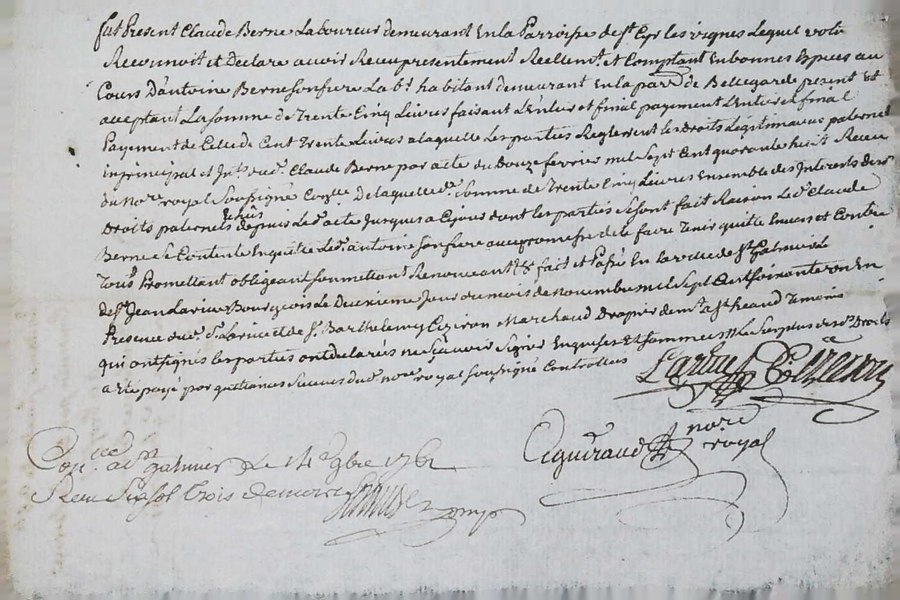 fut Present Claude Berne Laboureur demeurant En la Parroisse de st Cyr les vignes Lequel
Reconnoit et Declare avoir Receu presentement Reellemt. et Comptant En bonnes Especes au
Cours D'antoine Berne son frere La bt. habitant demeurant en la parre. de Bellegarde present Et
acceptant La somme de Trente Cinq Livres faisant L'entier et final payement L'entier et final
Payement de Celle de Cent Trente Livres a laquelle Les parties Reglerent les Droits Légitimaux paternel
in principal et Jnts. dud. Claude Berne par acte du Douze fevrier mil Sept Cent quarante huit Receu
du nore. royal Soussigné De laquelle de. Somme de Trente Cinq Livres Ensemble des Interests des
Droits paternels Echus depuis Led. acte Jusques a Cejour dont les parties Se sont fait Raison Led. Claude
Berne Se Contente En quitte Led. antoine Son frere avec promesse de le faire Tenir quitte Envers et Contre
Tous Promettant obligeant Soumettant Renonceant &c fait et Passé En la ville de st Galmier
de sr. Jean Larive Bourgeois Le Deuxieme Jour du mois de novembre mil Sept Cent Soixante un En
Presence dud. sr. Larive et de sr. Barthelemy Eyziron Marchand Drapier demt. a st heand Temoins
qui ont signés Les parties ont declarés ne Sçavoir Signer Enquises Et Sommées Le Surplus des ds. Droits
a Eté payé par quittances Receues dud. nore. royal Soussigné Controllees
Larive Eyziron
nore.
royal
Con. a st. galmier Le 14e. 9bre 1761
Receu Six sol trois deniers